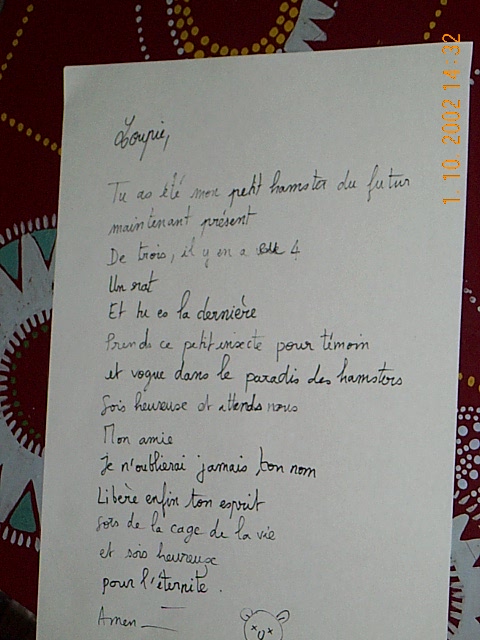 Loupie,
Tu as été mon petit hamster du futur
maintenant présent
De trois, il y en a 4
Un rat
Et tu es la dernière
Prends ce petit insecte pour témoin
et vogue dans le paradis des hamsters
Sois heureuse et attends nous
Mon amie
Je n'oublierai jamais ton nom
Libère enfin ton esprit
Sors de la cage de la vie
et sois heureuse
pour l'éternité.
Amen
1.10 2002 14:32